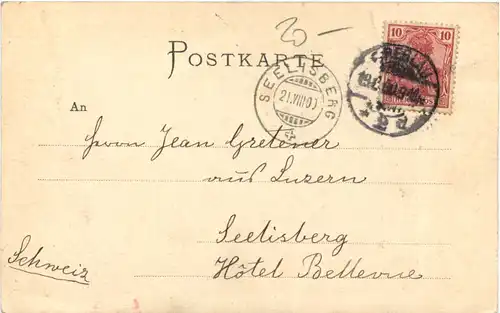 20-
POSTKARTE
10 10
BERLIN
SEELISBERG
21.VIII.00
An
Herrn Jean Gretener
aus Luzern
Seelisberg
Schweiz
Hôtel Bellevue